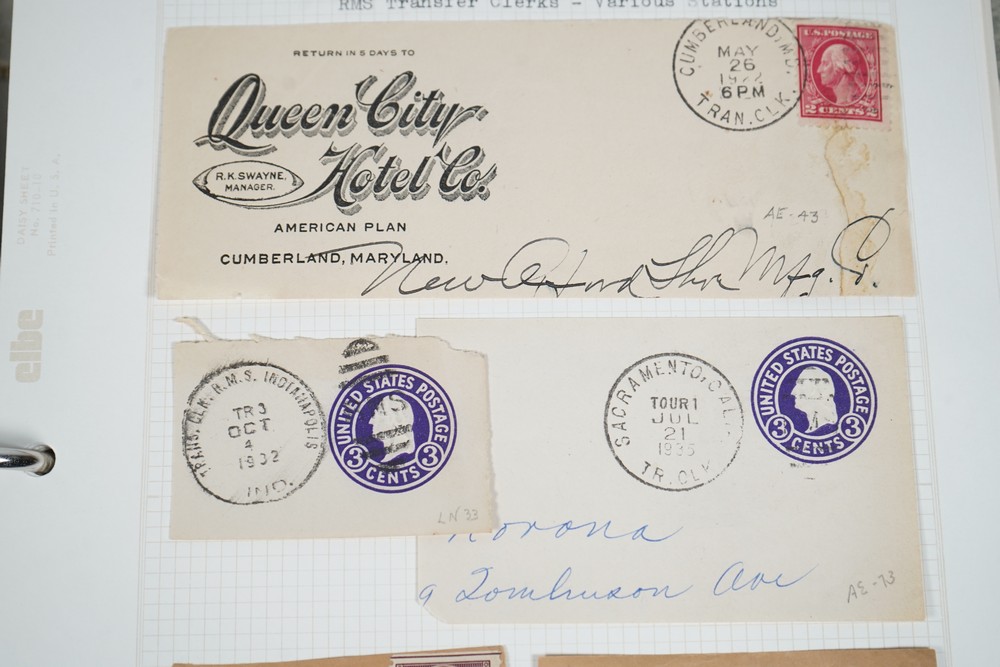 RMS Transfer Clerks - Various Stations
RETURN IN 5 DAYS TO
Queen City
Hotel Co.
R.K. SWAYNE,
MANAGER.
AMERICAN PLAN
CUMBERLAND, MARYLAND.
CUMBERLAND, MD.
MAY
26
1922
6 PM
TRAN. CLK.
U.S. POSTAGE
2 CENTS 2
AE-43
New Oxford Shoe Mfg. Co.
DAISY SHEET
No. 710-10
Printed in U.S.A.
elbe
TRANS. CLK. R.M.S. INDIANAPOLIS
TR 3
OCT
4
1932
IND.
UNITED STATES POSTAGE
3 CENTS 3
LN 33
SACRAMENTO, CAL.
TOUR 1
JUL
21
1935
TR. CLK.
UNITED STATES POSTAGE
3 CENTS 3
Korona
9 Tomlinson Ave
AE-73